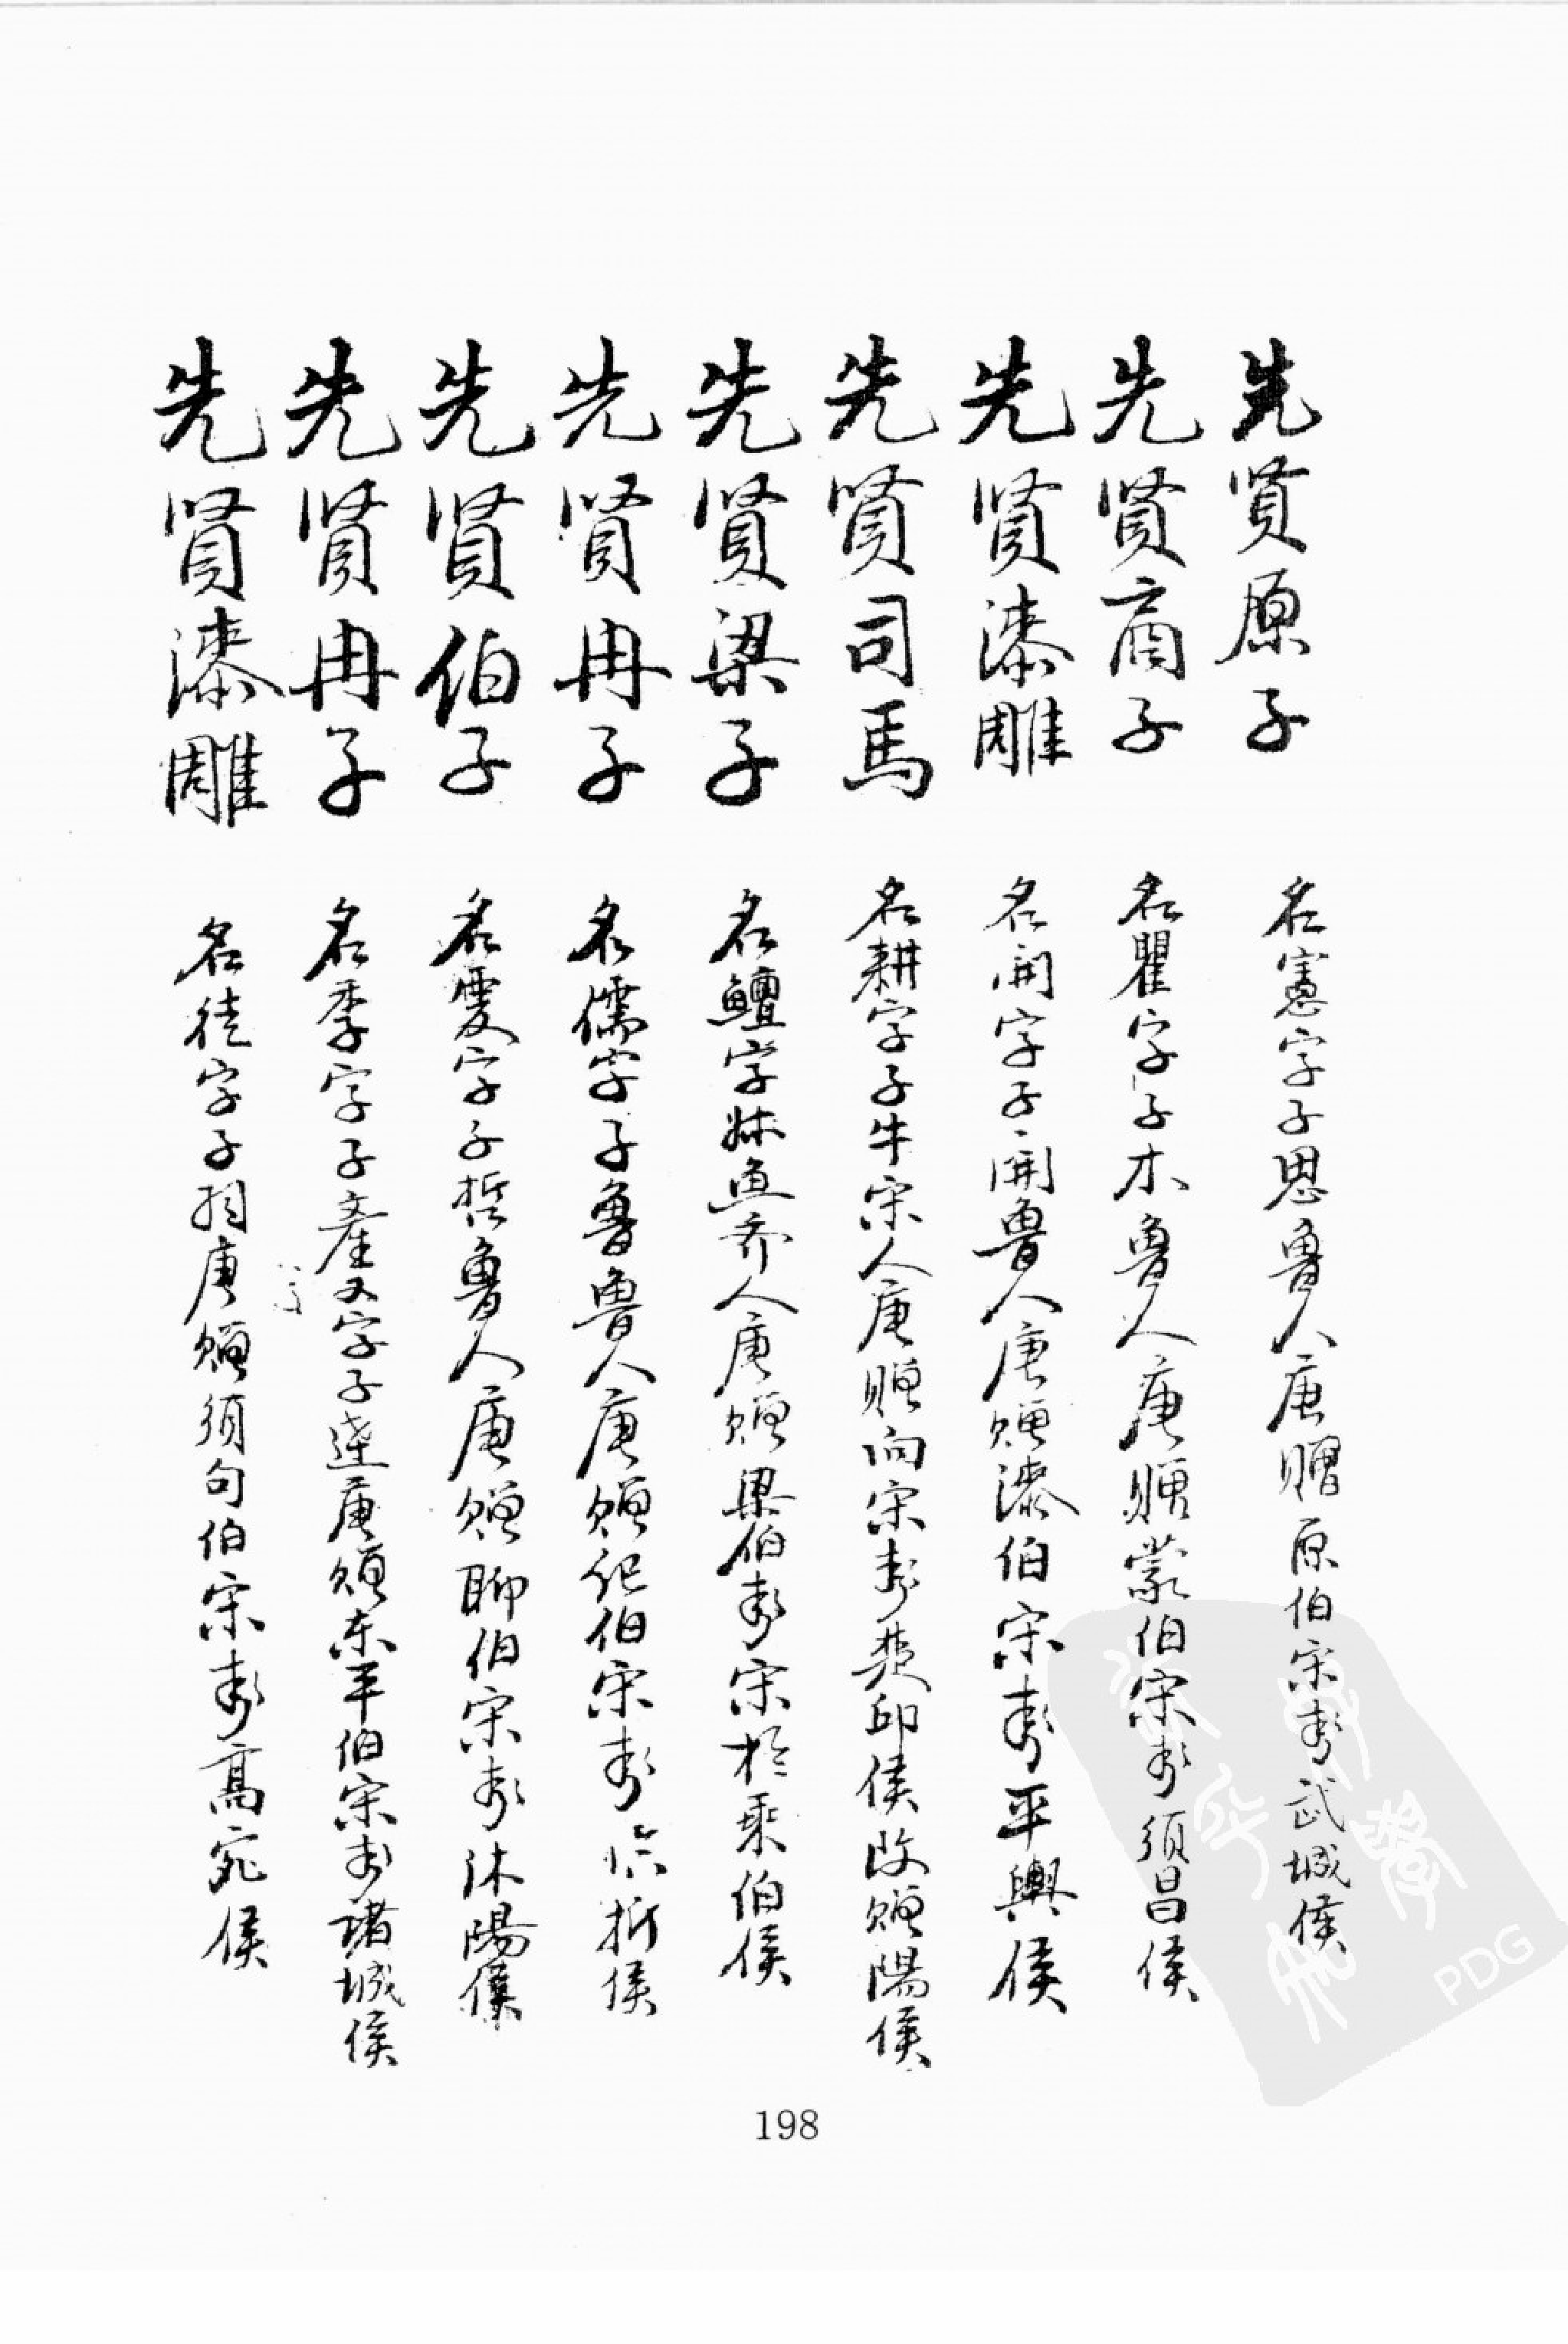 先贤原子 名憲字子思魯人唐赠原伯宋封武城侯
先贤商子 名瞿字子木魯人唐赠蒙伯宋封须昌侯
先贤漆雕 名開字子開魯人唐赠漆伯宋封平輿侯
先贤司馬 名耕字子牛宋人唐赠向宋封楚邱侯改赠陽侯
先贤梁子 名鱣字妹魚齐人唐赠梁伯封宋於乘伯侯
先贤冉子 名儒字子魯魯人唐赠纪伯宋封临折侯
先贤伯子 名虔字子哲魯人唐赠聊伯宋封沐陽侯
先贤冉子 名季字子產又字子達唐赠东平伯宋封诸城侯
先贤漆雕 名徒字子唐赠须句伯宋封高宛侯
198
PDG